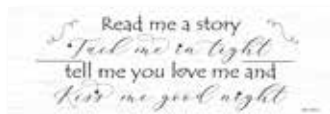 Read me a story
Tuck me in tight
tell me you love me and
Kiss me good night